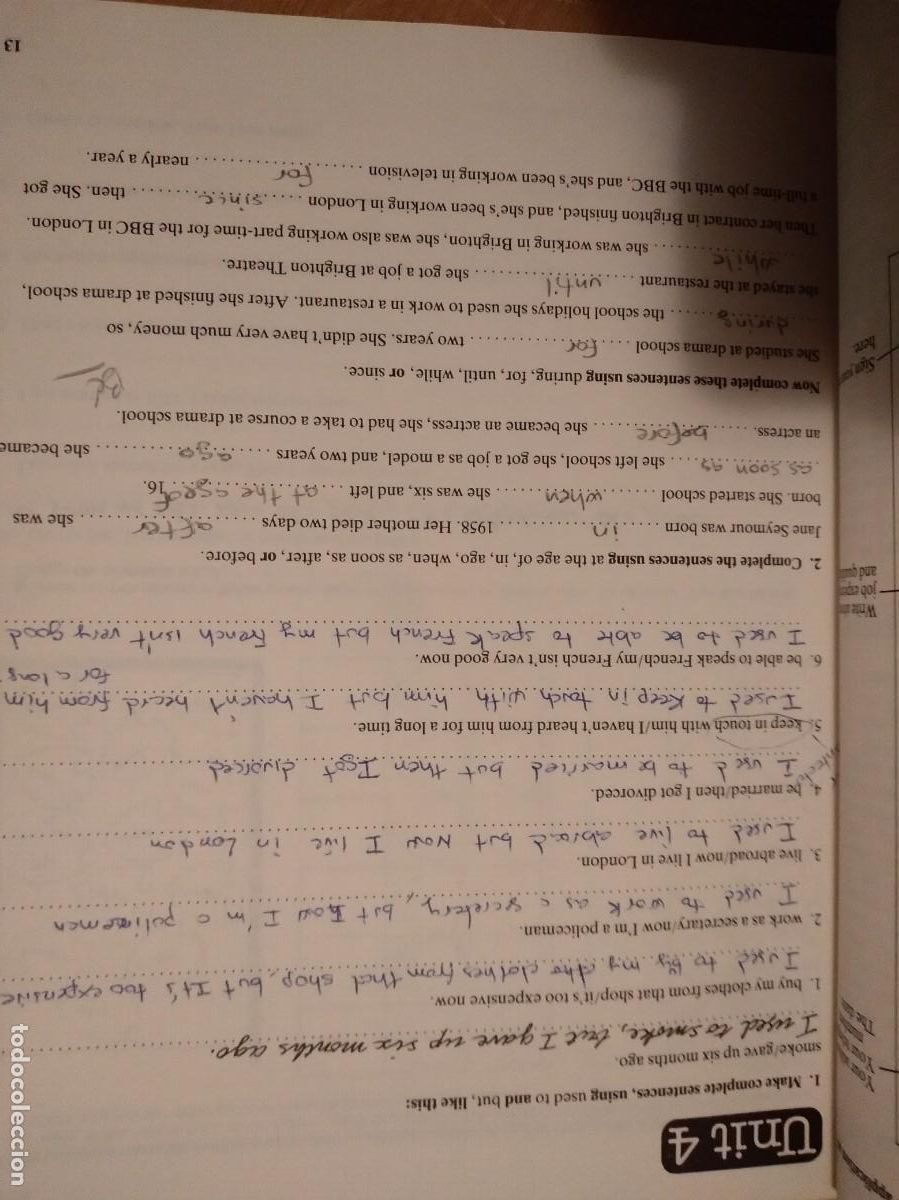 Unit 4
1. Make complete sentences, using used to and but, like this:
smoke/gave up six months ago.
I used to smoke, but I gave up six months ago.
1. buy my clothes from that shop/it's too expensive now.
I used to by my clothes from that shop, but It's too expensive
2. work as a secretary/now I'm a policeman.
I used to work as a secretery, but now I'm a policeman
3. live abroad/now I live in London.
I used to live abroad but Now I live in London
4. be married/then I got divorced.
I used to be married but then I got divorced
5. keep in touch with him/I haven't heard from him for a long time.
I used to keep in touch with him but I haven't heard from him
for a long
6. be able to speak French/my French isn't very good now.
I used to be able to speak French but my French isn't very good
2. Complete the sentences using at the age of, in, ago, when, as soon as, after, or before.
Jane Seymour was born ..... in ............ 1958. Her mother died two days ........ after ........ she was
born. She started school ....... when ....... she was six, and left ... at the age of ... 16.
as soon as .... she left school, she got a job as a model, and two years ..... ago .......... she became
an actress. ...... before ...... she became an actress, she had to take a course at drama school.
Now complete these sentences using during, for, until, while, or since.
She studied at drama school ..... for ............ two years. She didn't have very much money, so
during ...... the school holidays she used to work in a restaurant. After she finished at drama school,
she stayed at the restaurant ..... until ......... she got a job at Brighton Theatre.
while ....... she was working in Brighton, she was also working part-time for the BBC in London.
Then her contract in Brighton finished, and she's been working in London ..... since ......... then. She got
a full-time job with the BBC, and she's been working in television ........ for ........ nearly a year.
13
application
Your
Your
The
Write
job
and
Sign your
here.
todocoleccion